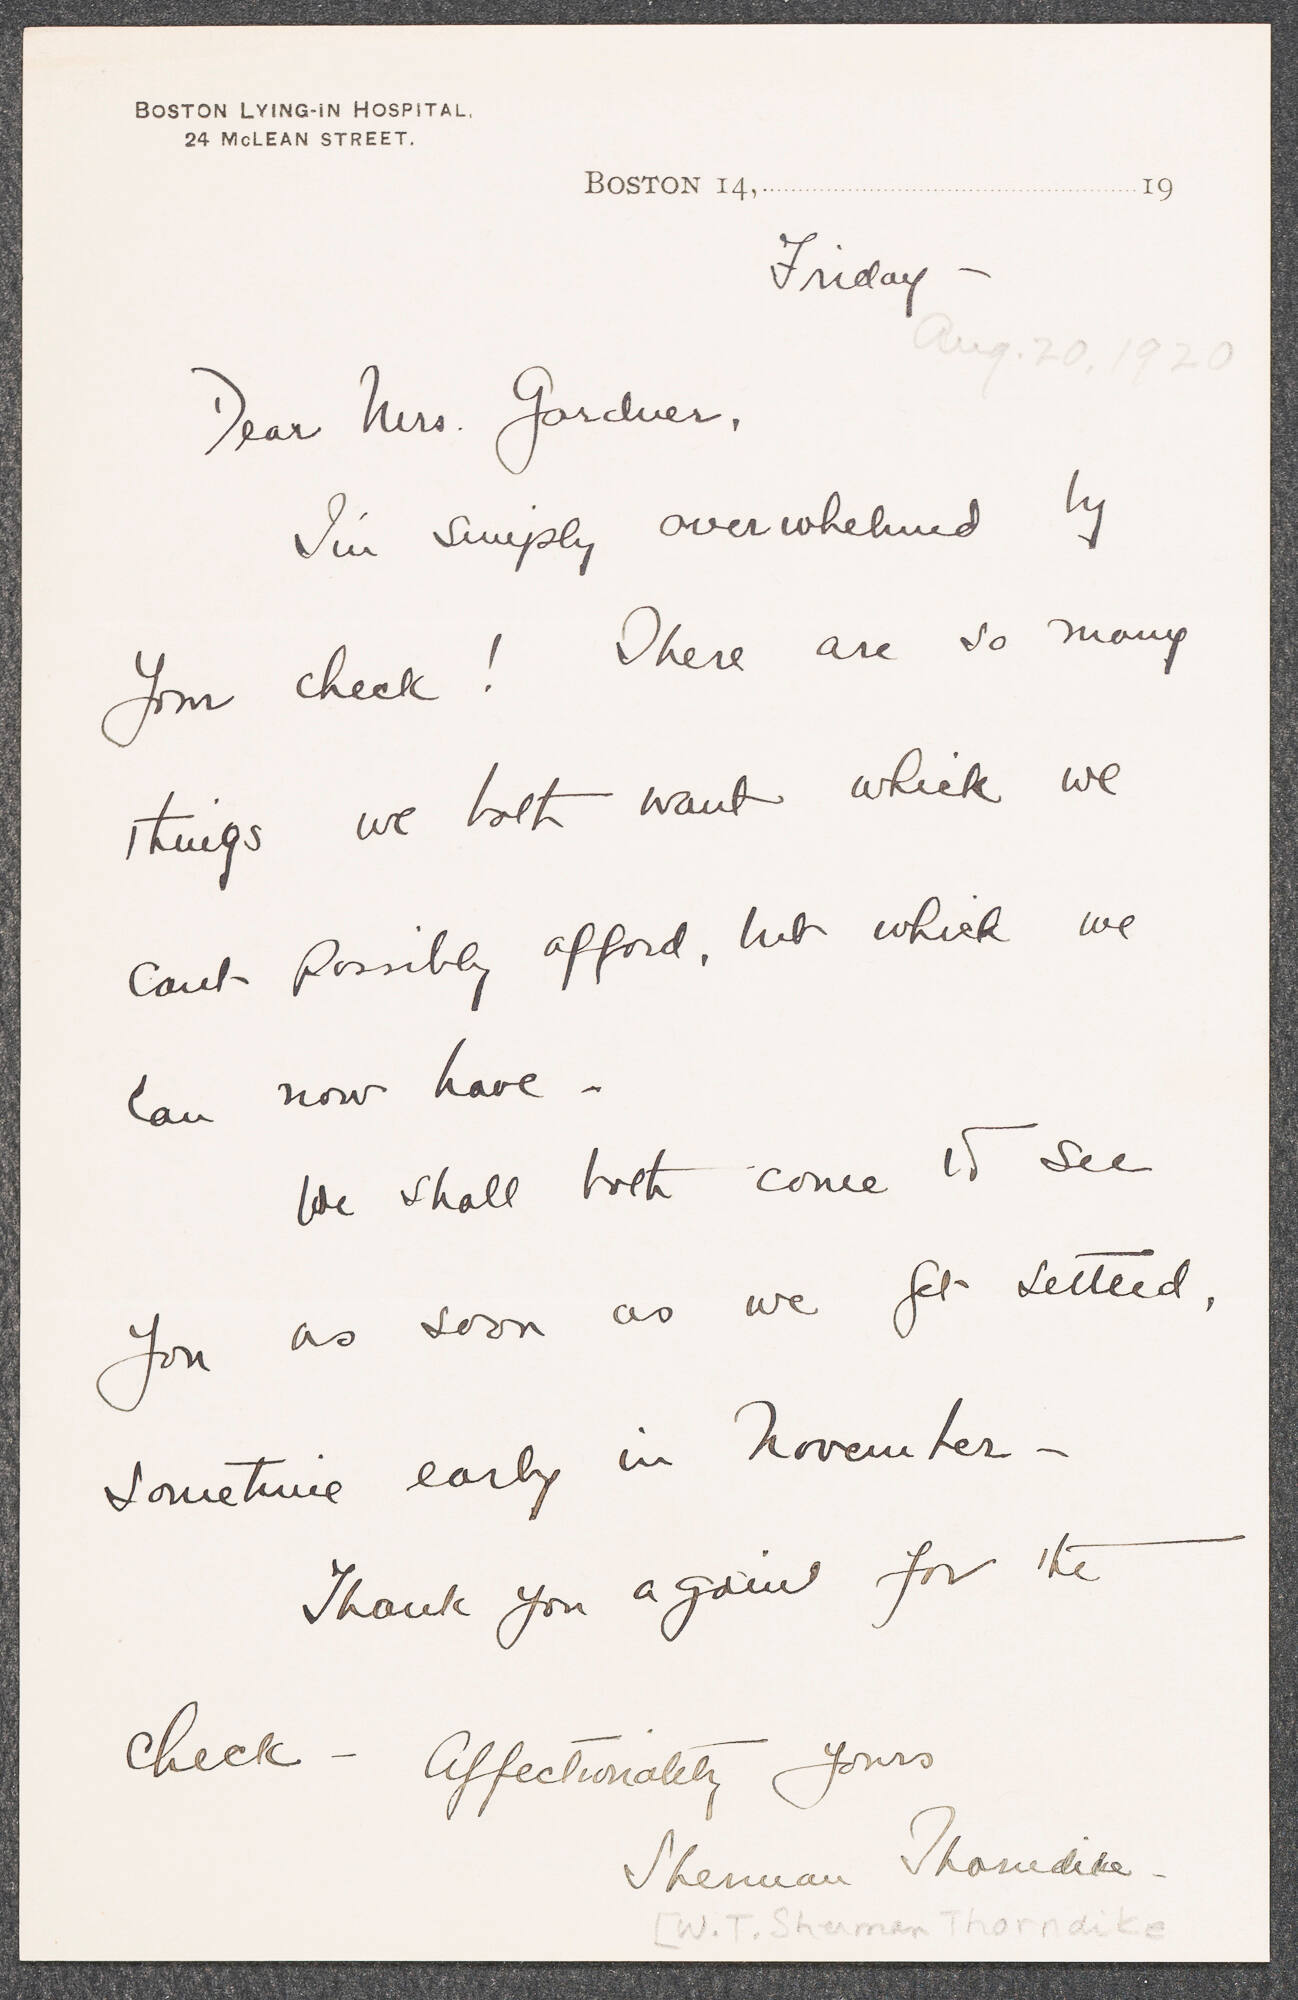 BOSTON LYING-IN HOSPITAL,
24 McLEAN STREET.
BOSTON 14, 19
Friday –
Aug. 20, 1920
Dear Mrs. Gardner,
I'm simply overwhelmed by
your check! There are so many
things we both want which we
cant possibly afford, but which we
can now have –
We shall both come to see
you as soon as we get settled,
sometime early in November –
Thank you again for the
check – Affectionately yours
Sherman Thorndike –
[W.T. Sherman Thorndike